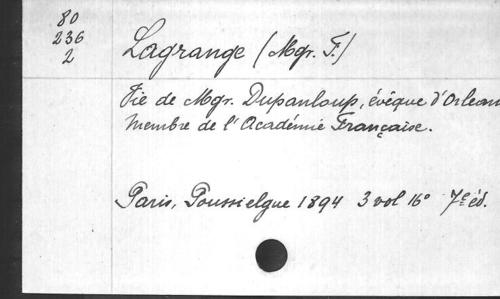 80
236
2
Lagrange (Mgr. F.)
Vie de Mgr. Dupanloup, évêque d'Orlean
membre de l'Académie Française.
Paris, Poussielgue 1894 3 vol 16° 7e éd.